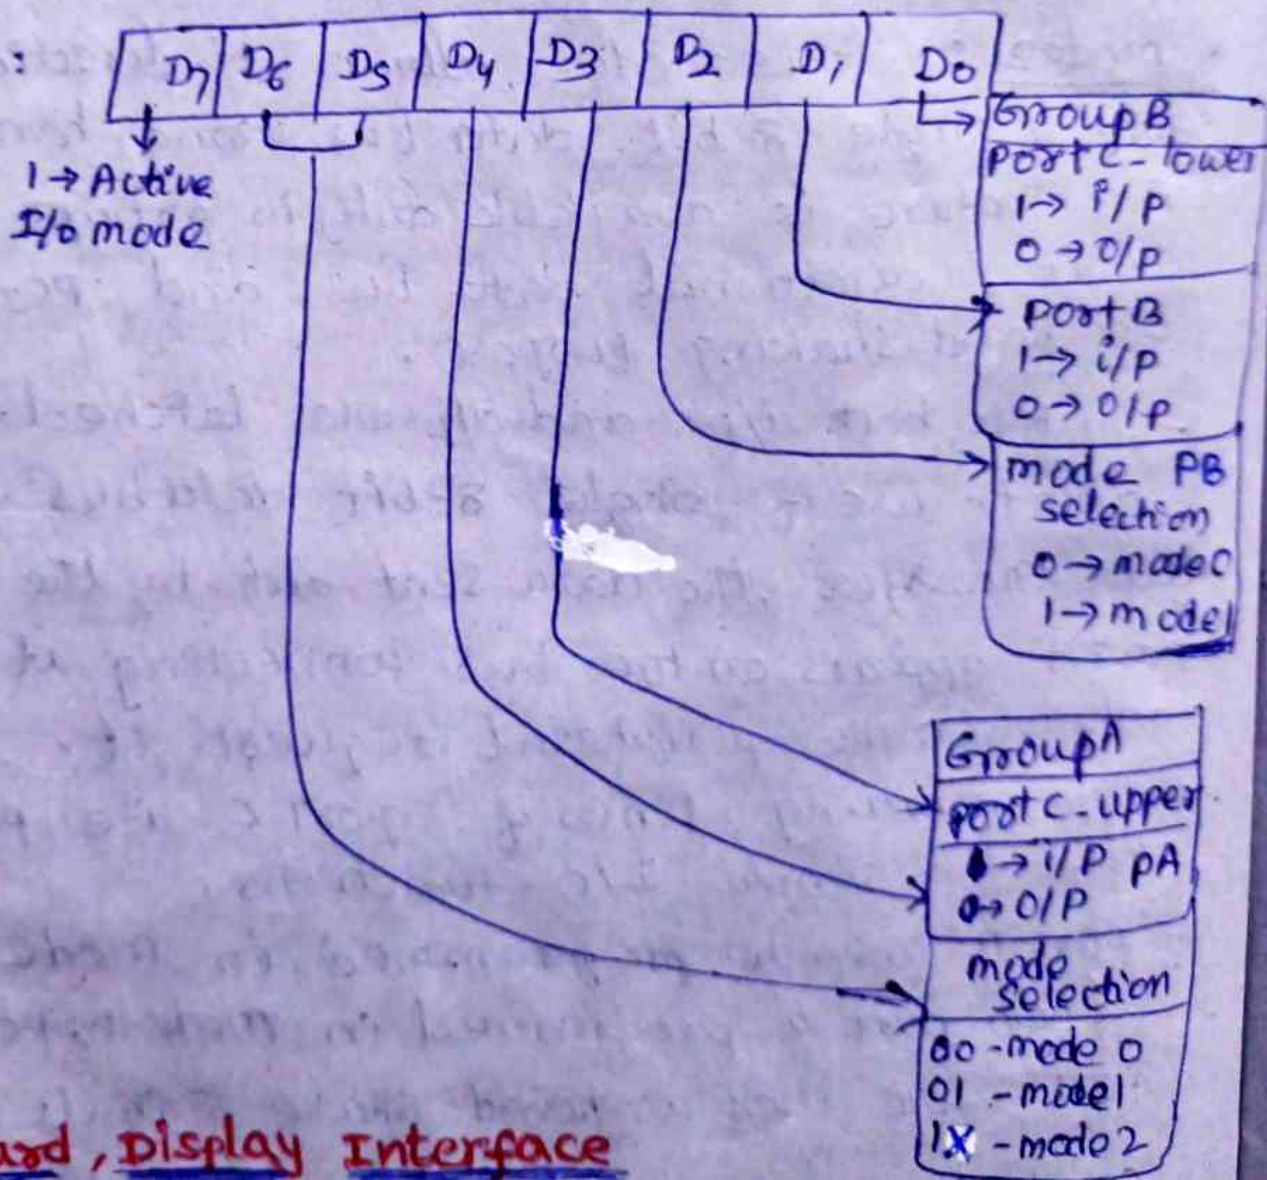 :
D7 D6 D5 D4 D3 D2 D1 D0
1 → Active
I/o mode
Group B
port C - lower
1 → i/p
0 → o/p
port B
1 → i/p
0 → o/p
mode PB
selection
0 → mode 0
1 → mode 1
Group A
port C - upper
→ i/p pA
0 → o/p
mode
selection
00 - mode 0
01 - mode 1
1X - mode 2
, Display Interface